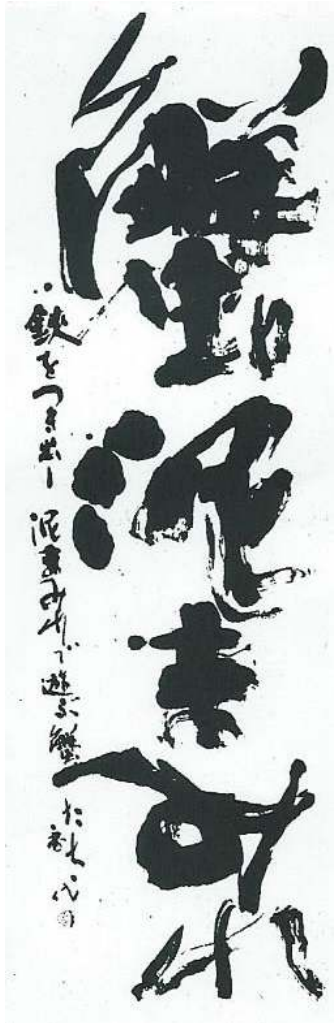 蟹泥まみれ
鋏をつき出し 泥まみれで遊ぶ蟹たち